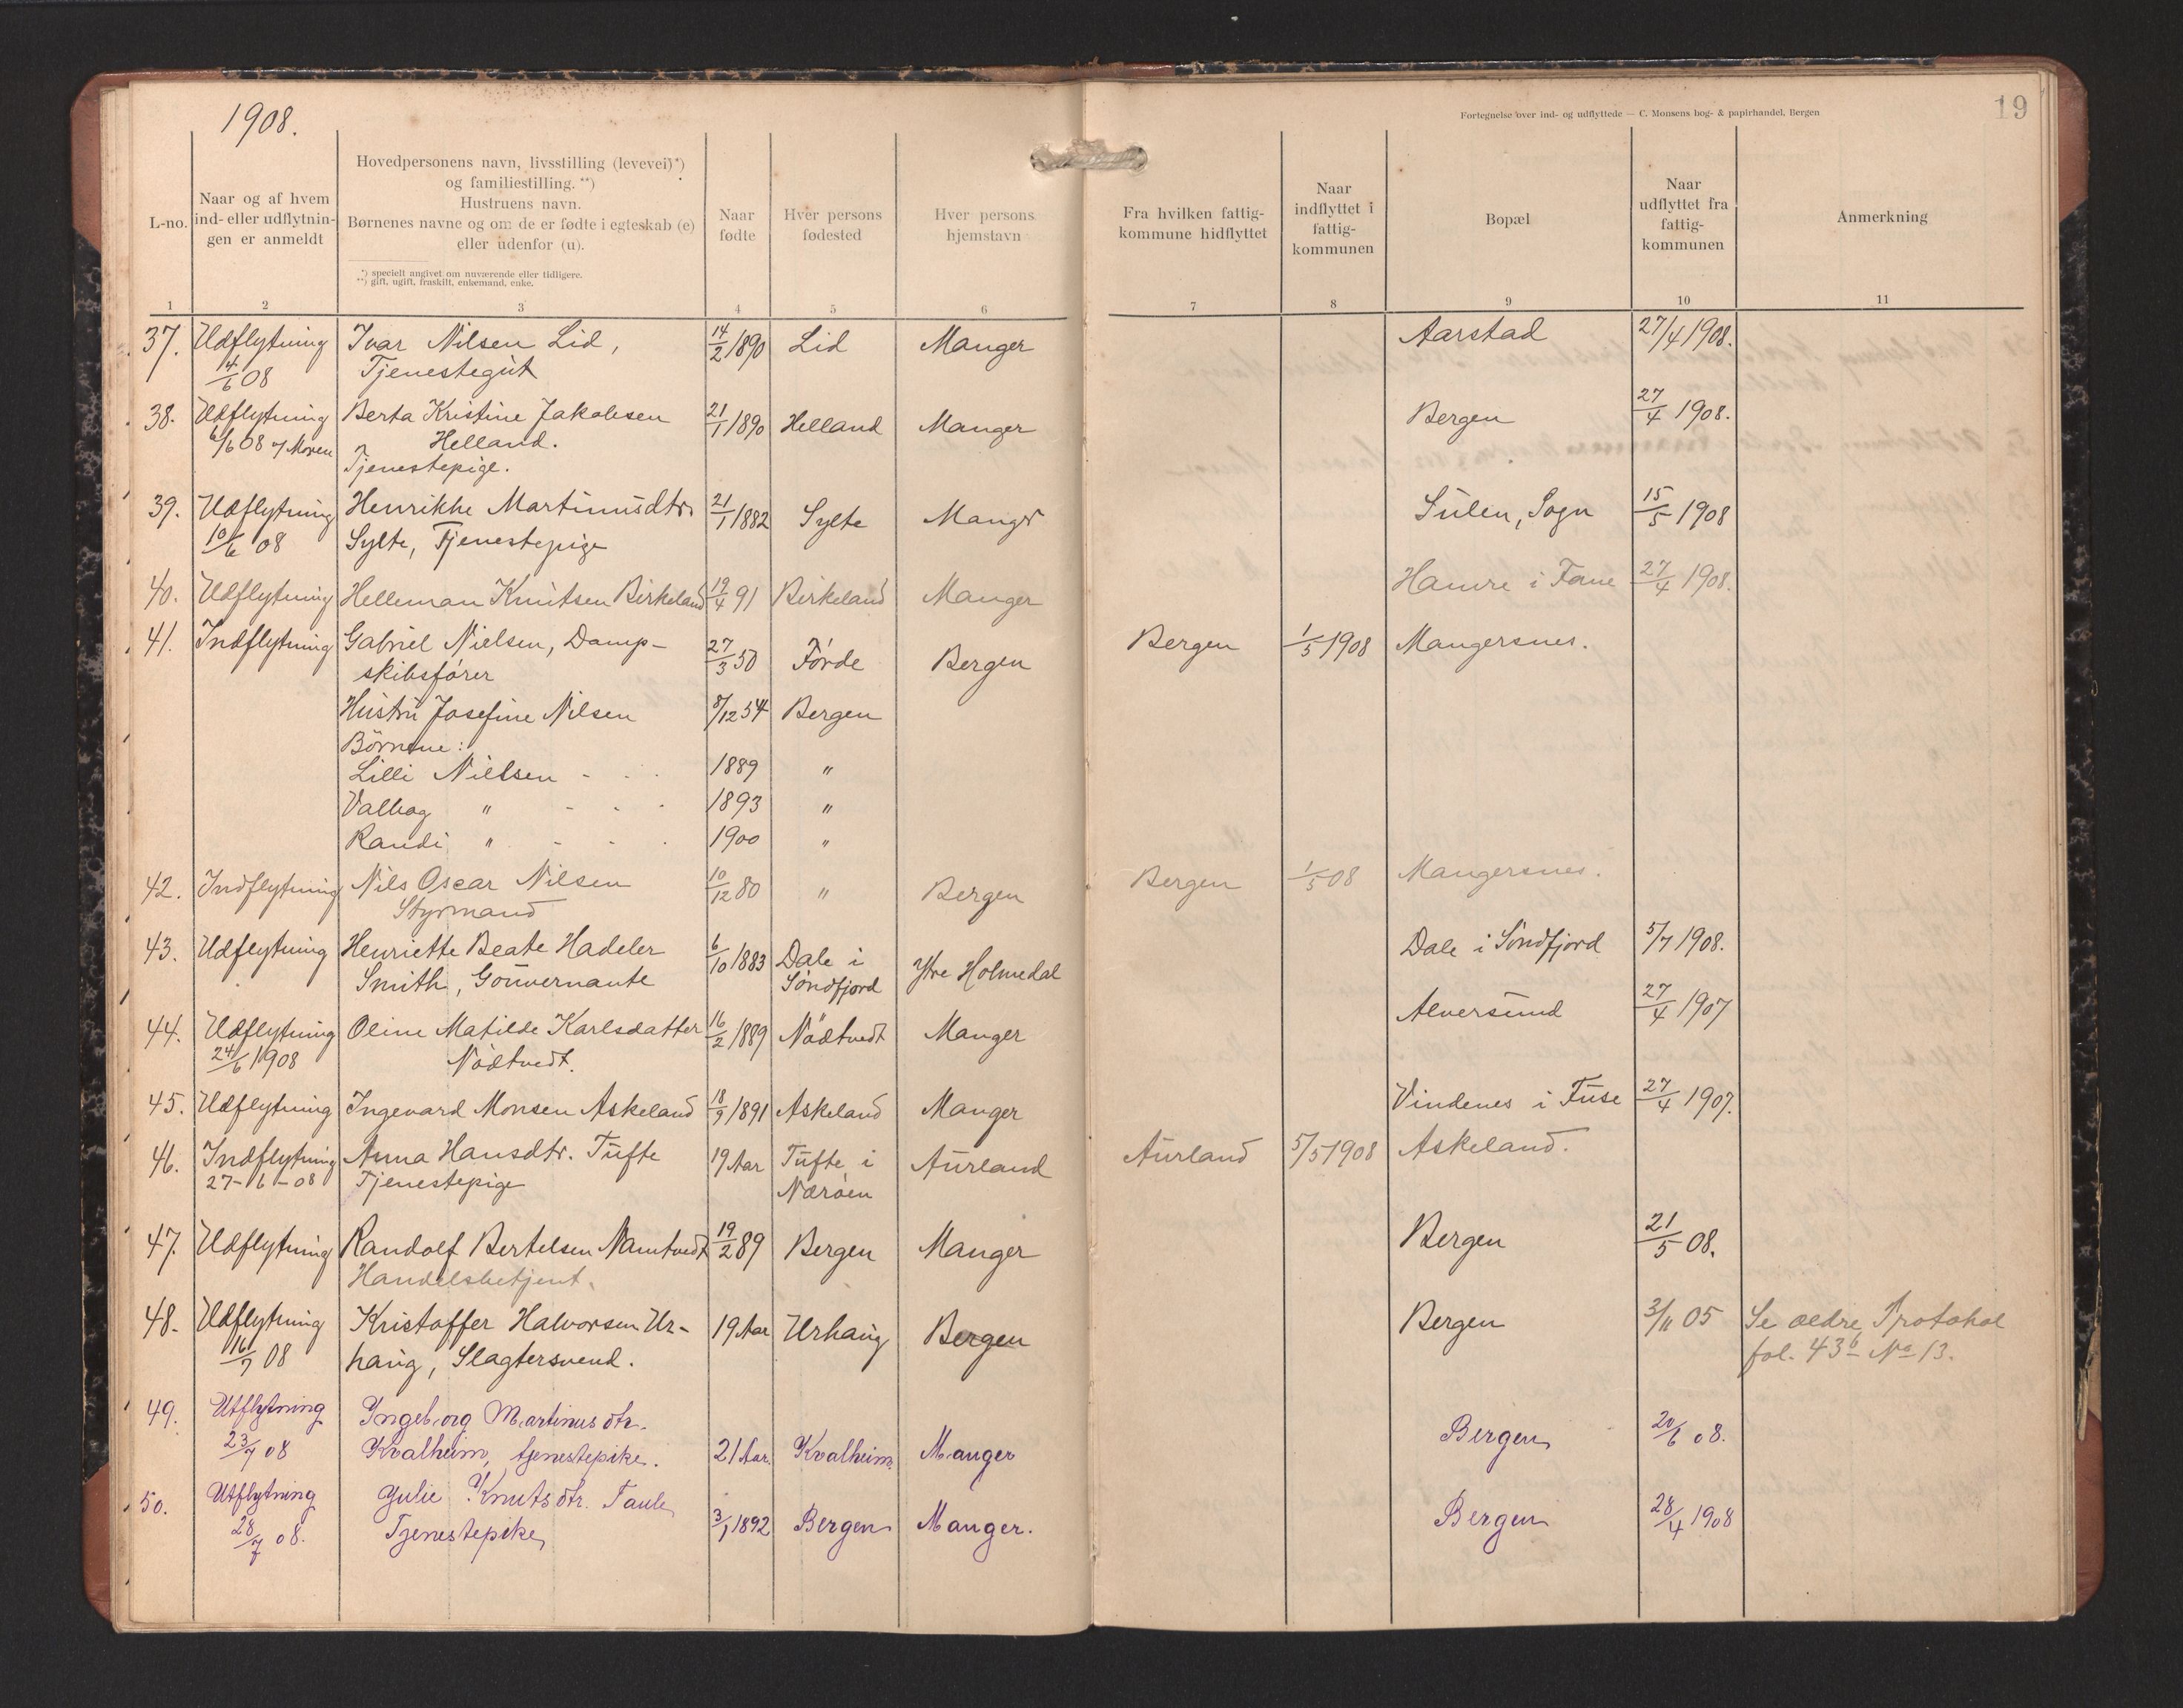 1908.
19
Fortegnelse over ind- og udflyttede — C. Monsens bog- & papirhandel, Bergen
L-no.
Naar og af hvem
ind- eller udflytnin-
gen er anmeldt
Hovedpersonens navn, livsstilling (levevei)*)
og familiestilling. **)
Hustruens navn.
Børnenes navne og om de er fødte i egteskab (e)
eller udenfor (u).
*) specielt angivet om nuværende eller tidligere.
**) gift, ugift, fraskilt, enkemand, enke.
Naar
fødte
Hver persons
fødested
Hver persons
hjemstavn
Fra hvilken fattig-
kommune hidflyttet
Naar
indflyttet i
fattig-
kommunen
Bopæl
Naar
udflyttet fra
fattig-
kommunen
Anmerkning
1 2 3 4 5 6 7 8 9 10 11
37. Udflytning Ivar Nilsen Lid, 14/2 1890 Lid Manger Aarstad 27/4 1908.
14/6 08 Tjenestegut
38. Udflytning Berta Kristine Jakobsen 21/1 1890 Helland Manger Bergen 27/4 1908.
6/6 08 Helland.
Tjenestepige.
39. Udflytning Henrikke Martinusdtr. 21/1 1882 Sylte Manger Sulen, Sogn 15/5 1908
10/6 08 Sylte, Tjenestepige
40. Udflytning Helleman Knutsen Birkeland 19/4 91 Birkeland Manger Hamre i Fane 27/4 1908.
41. Indflytning Gabriel Nielsen, Damp- 27/3 50 Førde Bergen Bergen 1/5 1908 Mangersnes.
skibsfører
Hustru Josefine Nilsen 8/12 54 Bergen
Børnene:
Lilli Nielsen - - - 1889 "
Valbog " - - - 1893 "
Randi " - - - 1900 "
42. Indflytning Nils Oscar Nilsen 10/12 80 " Bergen Bergen 1/5 08 Mangersnes.
Styrmand
43. Udflytning Henriette Beate Hadeler 6/10 1883 Dale i Ytre Holmedal Dale i Søndfjord 5/7 1908.
Smith, Gouvernante Søndfjord
44. Udflytning Oline Matilde Karlsdatter 16/2 1889 Nødtvedt Manger Alversund 27/4 1907
24/6 1908 Nødtvedt.
45. Udflytning Ingevard Monsen Askeland 18/9 1891 Askeland Manger Vindenes i Fuse 27/4 1907.
46. Indflytning Anna Hansdtr. Tufte 19 Aar Tufte i Aurland Aurland 5/5 1908 Askeland.
27-6-08 Tjenestepige Nærøen
47. Udflytning Randolf Bertelsen Namtvedt 19/2 89 Bergen Manger Bergen 21/5 08.
Handelsbetjent.
48. Udflytning Kristoffer Halvorsen Ur- 19 Aar Urhaug Bergen Bergen 3/11 05 Se ældre Protokol
16/7 08 haug, Slagtersvend. fol. 43b No 13.
49. Utflytning Ingeborg Martinusdtr.
23/7 08 Kvalheim, tjenestepike. 21 Aar. Kvalheim. Manger Bergen 20/6 08.
50. Utflytning Julie Knutsdtr. Taule
28/7 08. Tjenestepike 3/1 1892 Bergen Manger. Bergen 28/4 1908